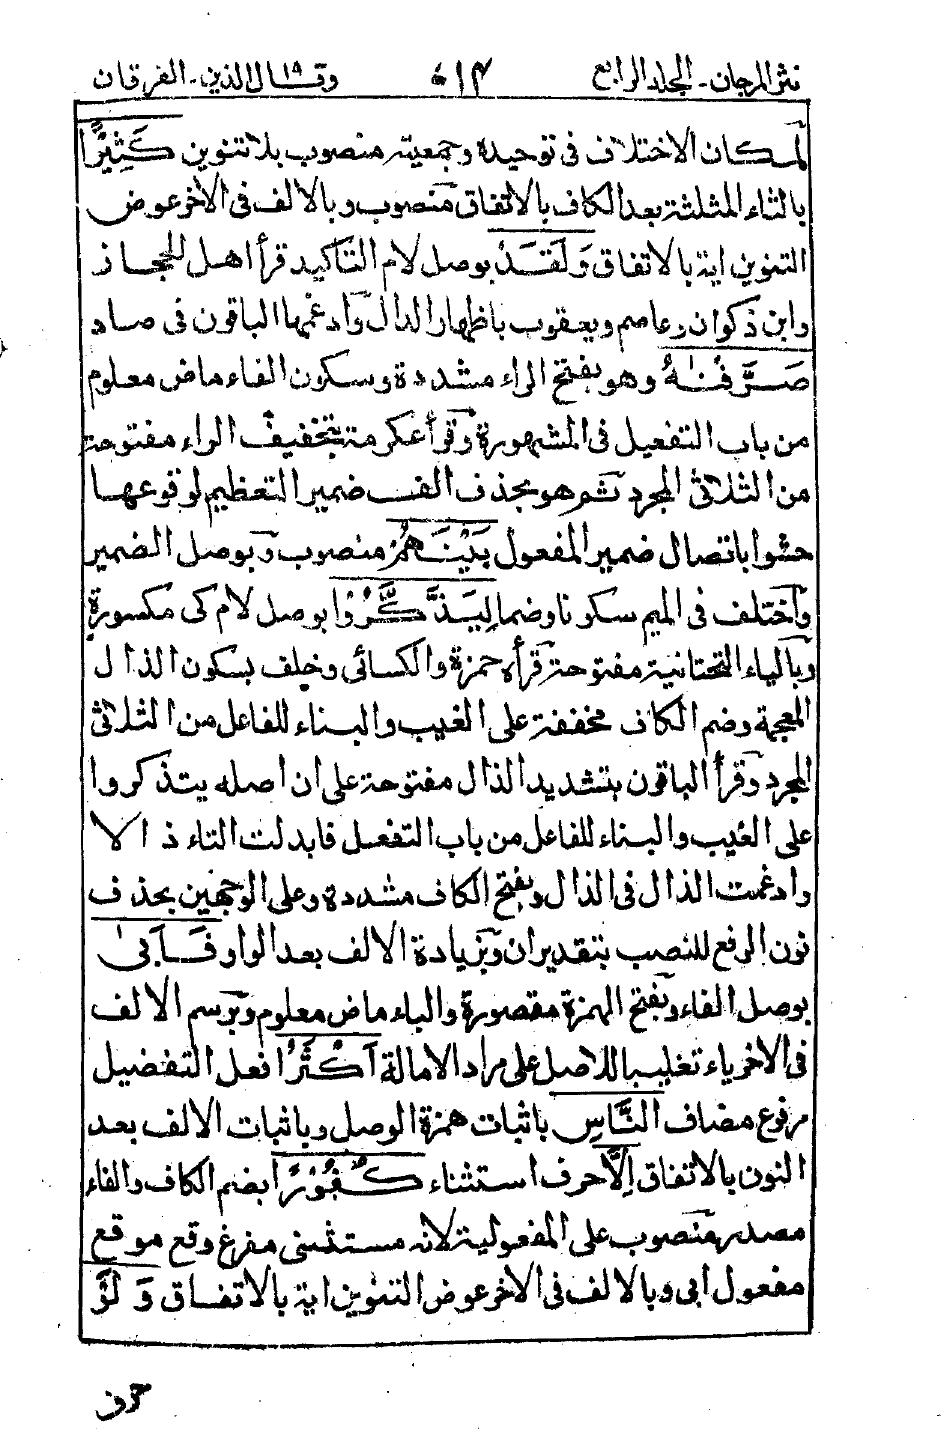 نثر المرجان - المجلد الرابع ٥١٤ وقال الذين ١٩ - الفرقان
لمكان الاختلاف فى توحيده وجمعيته منصوب بلا تنوين كَثِيْرًا
بالثاء المثلثة بعد الكاف بالاتفاق منصوب وبالالف فى الاخر عوض
التنوين اية بالاتفاق وَلَقَدْ بوصل لام التاكيد قرأ اهل الحجاز
وابن ذكوان وعاصم ويعقوب باظهار الدال وادغمها الباقون فى صاد
صَرَّفْنٰهُ وهو بفتح الراء مشددة وسكون الفاء ماض معلوم
من باب التفعيل فى المشهورة وقرأ عكرمة بتخفيف الراء مفتوحة
من الثلاثى المجرد ثم هو بحذف الف ضمير التعظيم لوقوعها
حشوا باتصال ضمير المفعول بَيْنَهُمْ منصوب وبوصل الضمير
واختلف فى الميم سكونا وضما لِيَذَّكَّرُوْا بوصل لام كى مكسورة
وبالياء التحتانية مفتوحة قرأه حمزة والكسائى وخلف بسكون الذال
المعجمة وضم الكاف مخففة على الغيب والبناء للفاعل من الثلاثى
المجرد وقرأ الباقون بتشديد الذال مفتوحة على ان اصله يتذكروا
على الغيب والبناء للفاعل من باب التفعل فابدلت التاء ذالا
وادغمت الذال فى الذال وبفتح الكاف مشددة وعلى الوجهين بحذف
نون الرفع للنصب بتقدير ان وبزيادة الالف بعد الواو فَاَبٰى
بوصل الفاء وبفتح الهمزة مقصورة والباء ماض معلوم وبرسم الالف
فى الاخر ياء تغليبا للاصل على مراد الامالة اَكْثَرُ افعل التفضيل
مرفوع مضاف النَّاسِ باثبات همزة الوصل وباثبات الالف بعد
النون بالاتفاق اِلَّا حرف استثناء كُفُوْرًا بضم الكاف والفاء
مصدر منصوب على المفعولية لانه مستثنى مفرغ وقع موقع
مفعول ابى وبالالف فى الاخر عوض التنوين اية بالاتفاق وَلَوْ
حرف